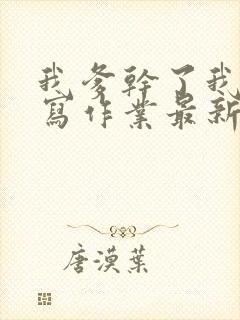 我爹幹了我
寫作業最新
唐漠葉